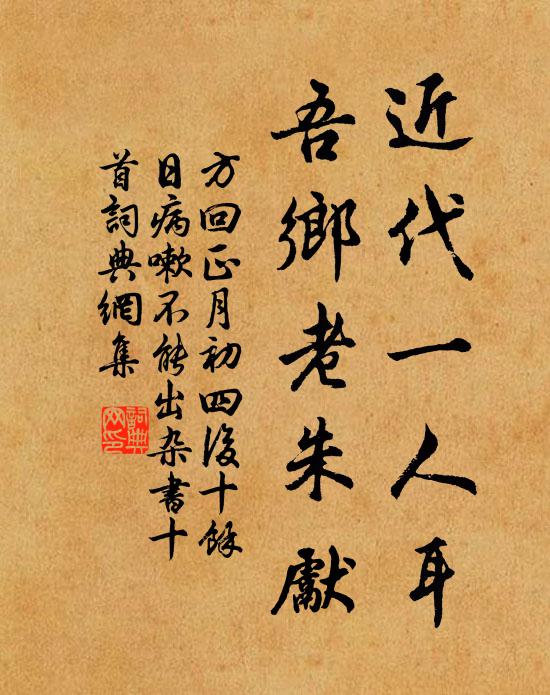 近代一人耳
吾鄉老朱獻
方回正月初四後十餘
日病嗽不能出杂書十
首詞典網集
詞典
网印